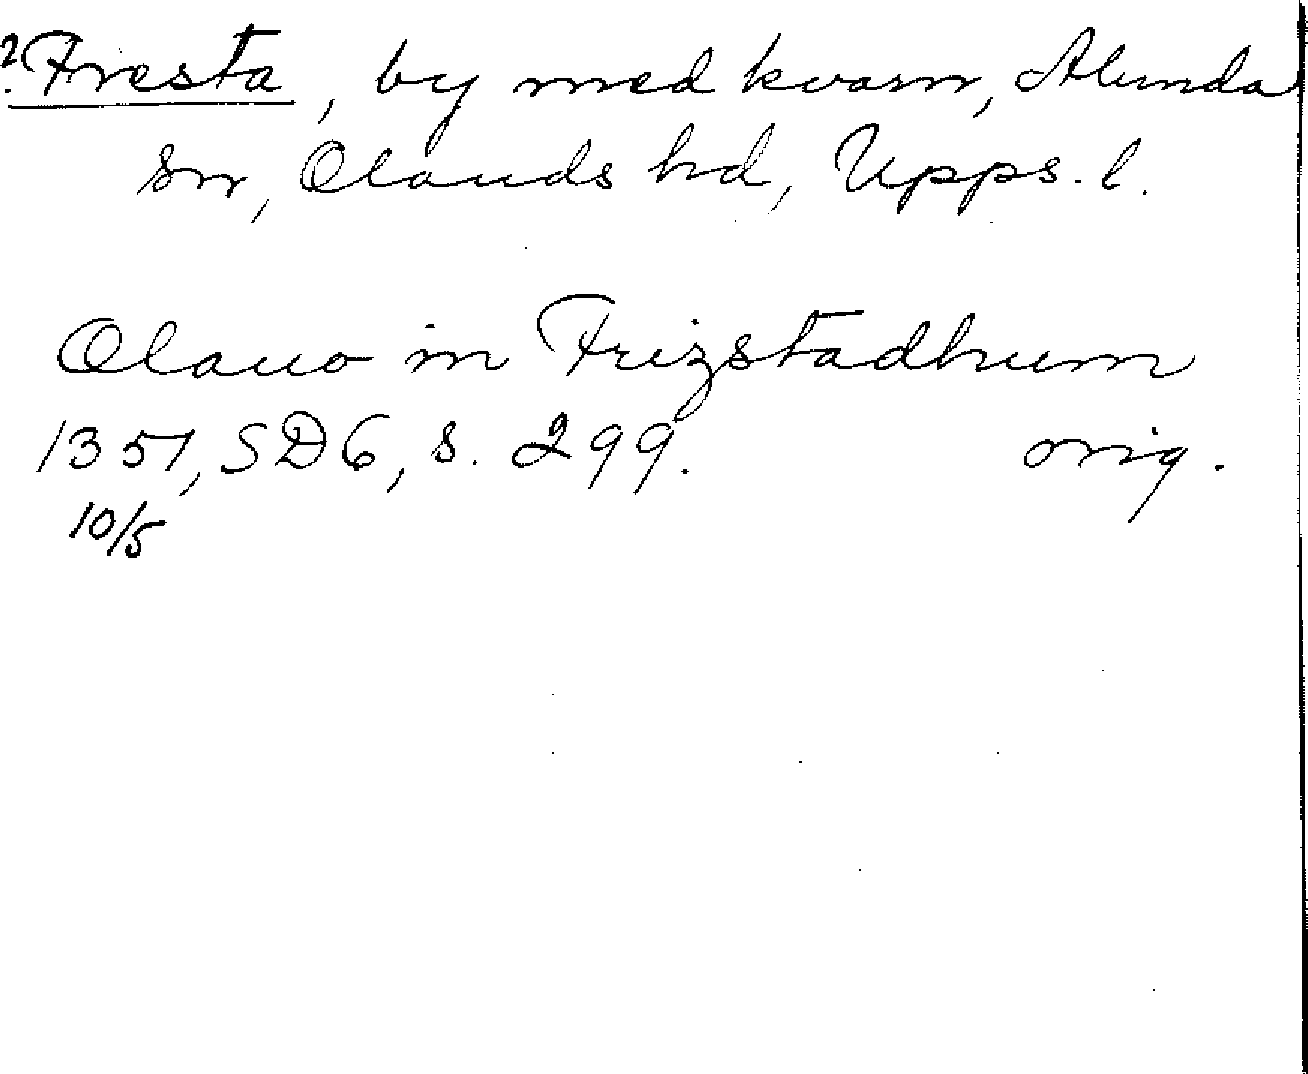 ? Fresta, by med kvarn, Alunda
sn, Olands hd, Upps. l.
Olauo in Frizstadhum
1351, SD6, s. 299. orig.
10/5